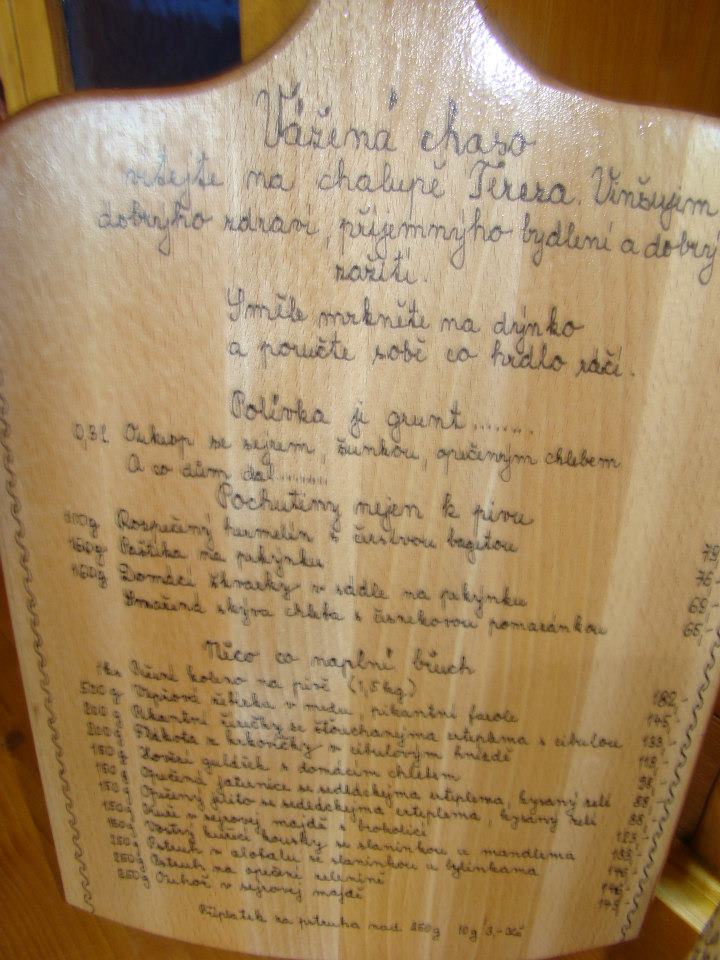 Vážená chaso
vítejte na chalupě Tereza. Vinšujem
dobrýho zdraví, příjemnýho bydlení a dobrý
zažití.
Směle mrkněte na drýnko
a poručte sobě co hrdlo ráčí.
Polívka ji grunt.......
0,3l Oukrop se sejrem, šunkou, opečeným chlebem
A co dům dal.......
Pochutiny nejen k pivu
Rozpečený hermelín s čerstvou bagetou 75,-
150g Paštika na prkýnku 76,-
150g Domácí škvarky v sádle na prkýnku 69,-
Smažená skýva chleba s česnekovou pomazánkou 66,-
Něco co naplní břuch
1ks koleno na pivě (1,5kg) 182,-
500g Vepřová žebírka v medu, pikantní fazole 145,-
200g Pikantní se šťouchanýma erteplema s cibulou 133,-
200g Flákota z krkovičky v cibulovým hnízdě 118,-
150g Hovězí guláš s domácím chlebem
150g Opečená jaternice se sedláckejma erteplema, kysaný zelí 88,-
150g Opečený jelito se sedláckejma erteplema, kysaný zelí 88,-
150g Kuře v sejrovej majdě s brokolicí 123,-
150g kuřecí kousky se slaninkou a mandlema
250g Pstruh v alobalu se slaninkou a bylinkama
250g Pstruh na opečený zelenině
250g v sejrovej majdě
Příplatek za pstruha nad 250g 10g 3,-Kč